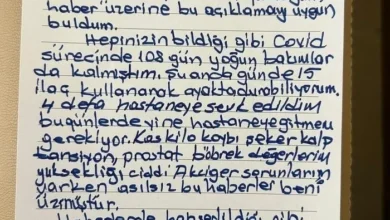 haber üzerine bu açıklamayı uygun
buldum.
Hepinizin bildiği gibi Covid
sürecinde 108 gün yoğun bakımlar
da kalmıştım. Şu anda günde 15
ilaç kullanarak ayakta durabiliyorum.
4 defa hastaneye sevk edildim
bugünlerde yine hastaneye gitmem
gerekiyor. Kas kilo kaybı şeker kalp
tansiyon, prostat böbrek değerlerim
yüksekliği ciddi Akciğer sorunlarım
varken asılsız bu haberler beni
üzmüştür.